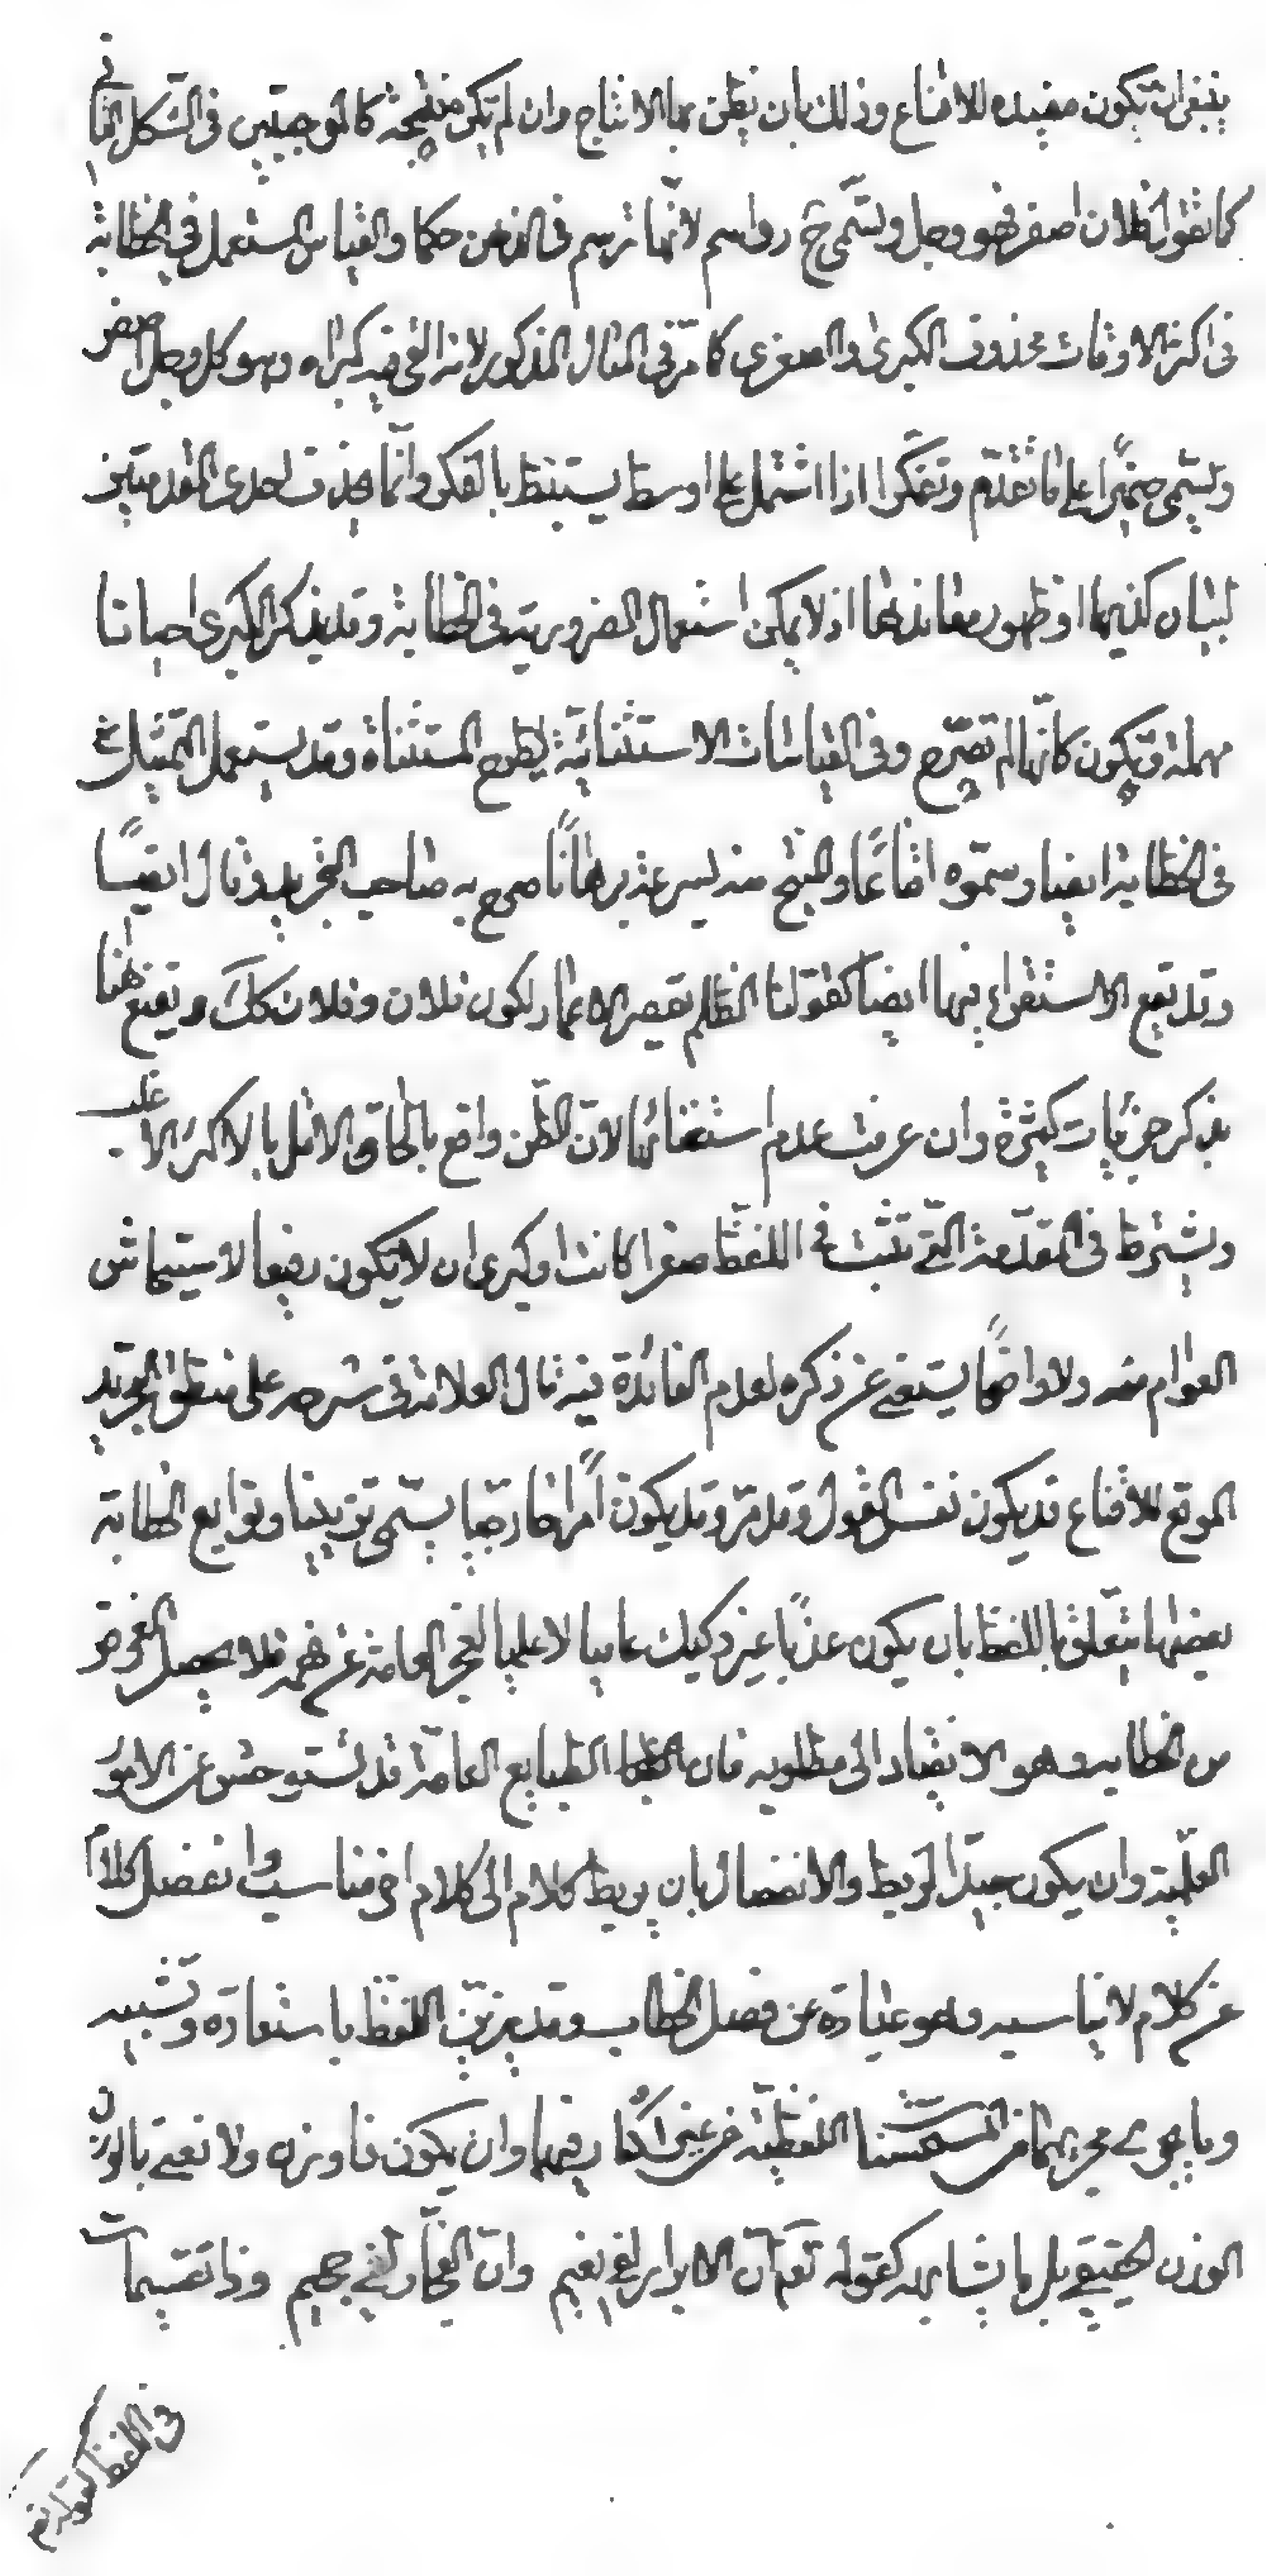 ينبغى ان تكون مفيده للاقناع وذلك بان يظن بها الانتاج وان لم تكن منتجة كالموجبتين فى الشكل الثانى
كما تقول فلان اصفر فهو وجل وتسمى ح رواسم لانها ترسم فى الذهن حكما والقياس المستعمل فى الخطابة
فى اكثر الاوقات محذوف الكبرى والصغرى كما مر فى المثال المذكور لانه القى فيه كبراه وهو كل وجل اصفر
ويسمى ضميرا على ما تقدم وتفكرا اذا اشتمل على اوسط يستنبط بالفكر وانما يحذف احدى المقدمتين
لبيان كذبهما او ظهور معاندتها اذ لا يمكن استعمال الضرورية فى الخطابة وقد يذكر الكبرى احيانا
مهملة وتكون كانها لم تصرح وفى القياسات الاستثنائية يطرح المستثناة وقد يستعمل التمثيل
فى الخطابة ايضا وسموه اقناعا والمنتج منه بسرعة برهانا صرح به صاحب التجريد وقال ايضا
وقد تقع الاستقراء فيها ايضا كقولنا الظلم يقصر الاعمار لكون فلان وفلان كك ويقنع هنا
بذكر جزئيات كثيرة وان عرفت عدم استقصائها لان الظن واقع بالحاق الاقل بالاكثر الاغلب
ويشترط فى المقدمة التى تثبت فى اللفظ صغرا كانت او كبرى ان لا يكون رفيعا لا
العوام منه ولا واضحا يستغنى عن ذكره لعدم الفائدة فيه قال العلامة فى شرحه على منطق التجريد
الموقع للاقناع قد يكون نفس القول وقد مر وقد يكون امرا خارجيا يسمى تزيينا وتوابع الخطابة
بعضها يتعلق باللفظ بان يكون عذبا غير ركيك عاميا لا علميا لعجز العامة عن فهمه فلا يحصل الغرض
من الخطابة وهو الانقياد الى مطلوبه فان الطبايع العامة قد تستوحش عن الامور
العلمية وان يكون جيد الربط والانفصال بان يربط كلام الى كلام اخر مناسب وانفصل كلاما
عن كلام لا يناسبه وهو عبارة عن فصل الخطاب وقد يزين اللفظ باستعارة وتشبيه
وما يجرى مجريهما من المستحسنات اللفظية من غير اكثار فيها وان يكون ذا وزن ولا نعنى بالوزن
الوزن الحقيقى بل ما يشابهه كقوله تعم ان الابرار لفى نعيم وان الفجار لفى جحيم وذا تقسيمات
فى اللفظ كقوله تعم